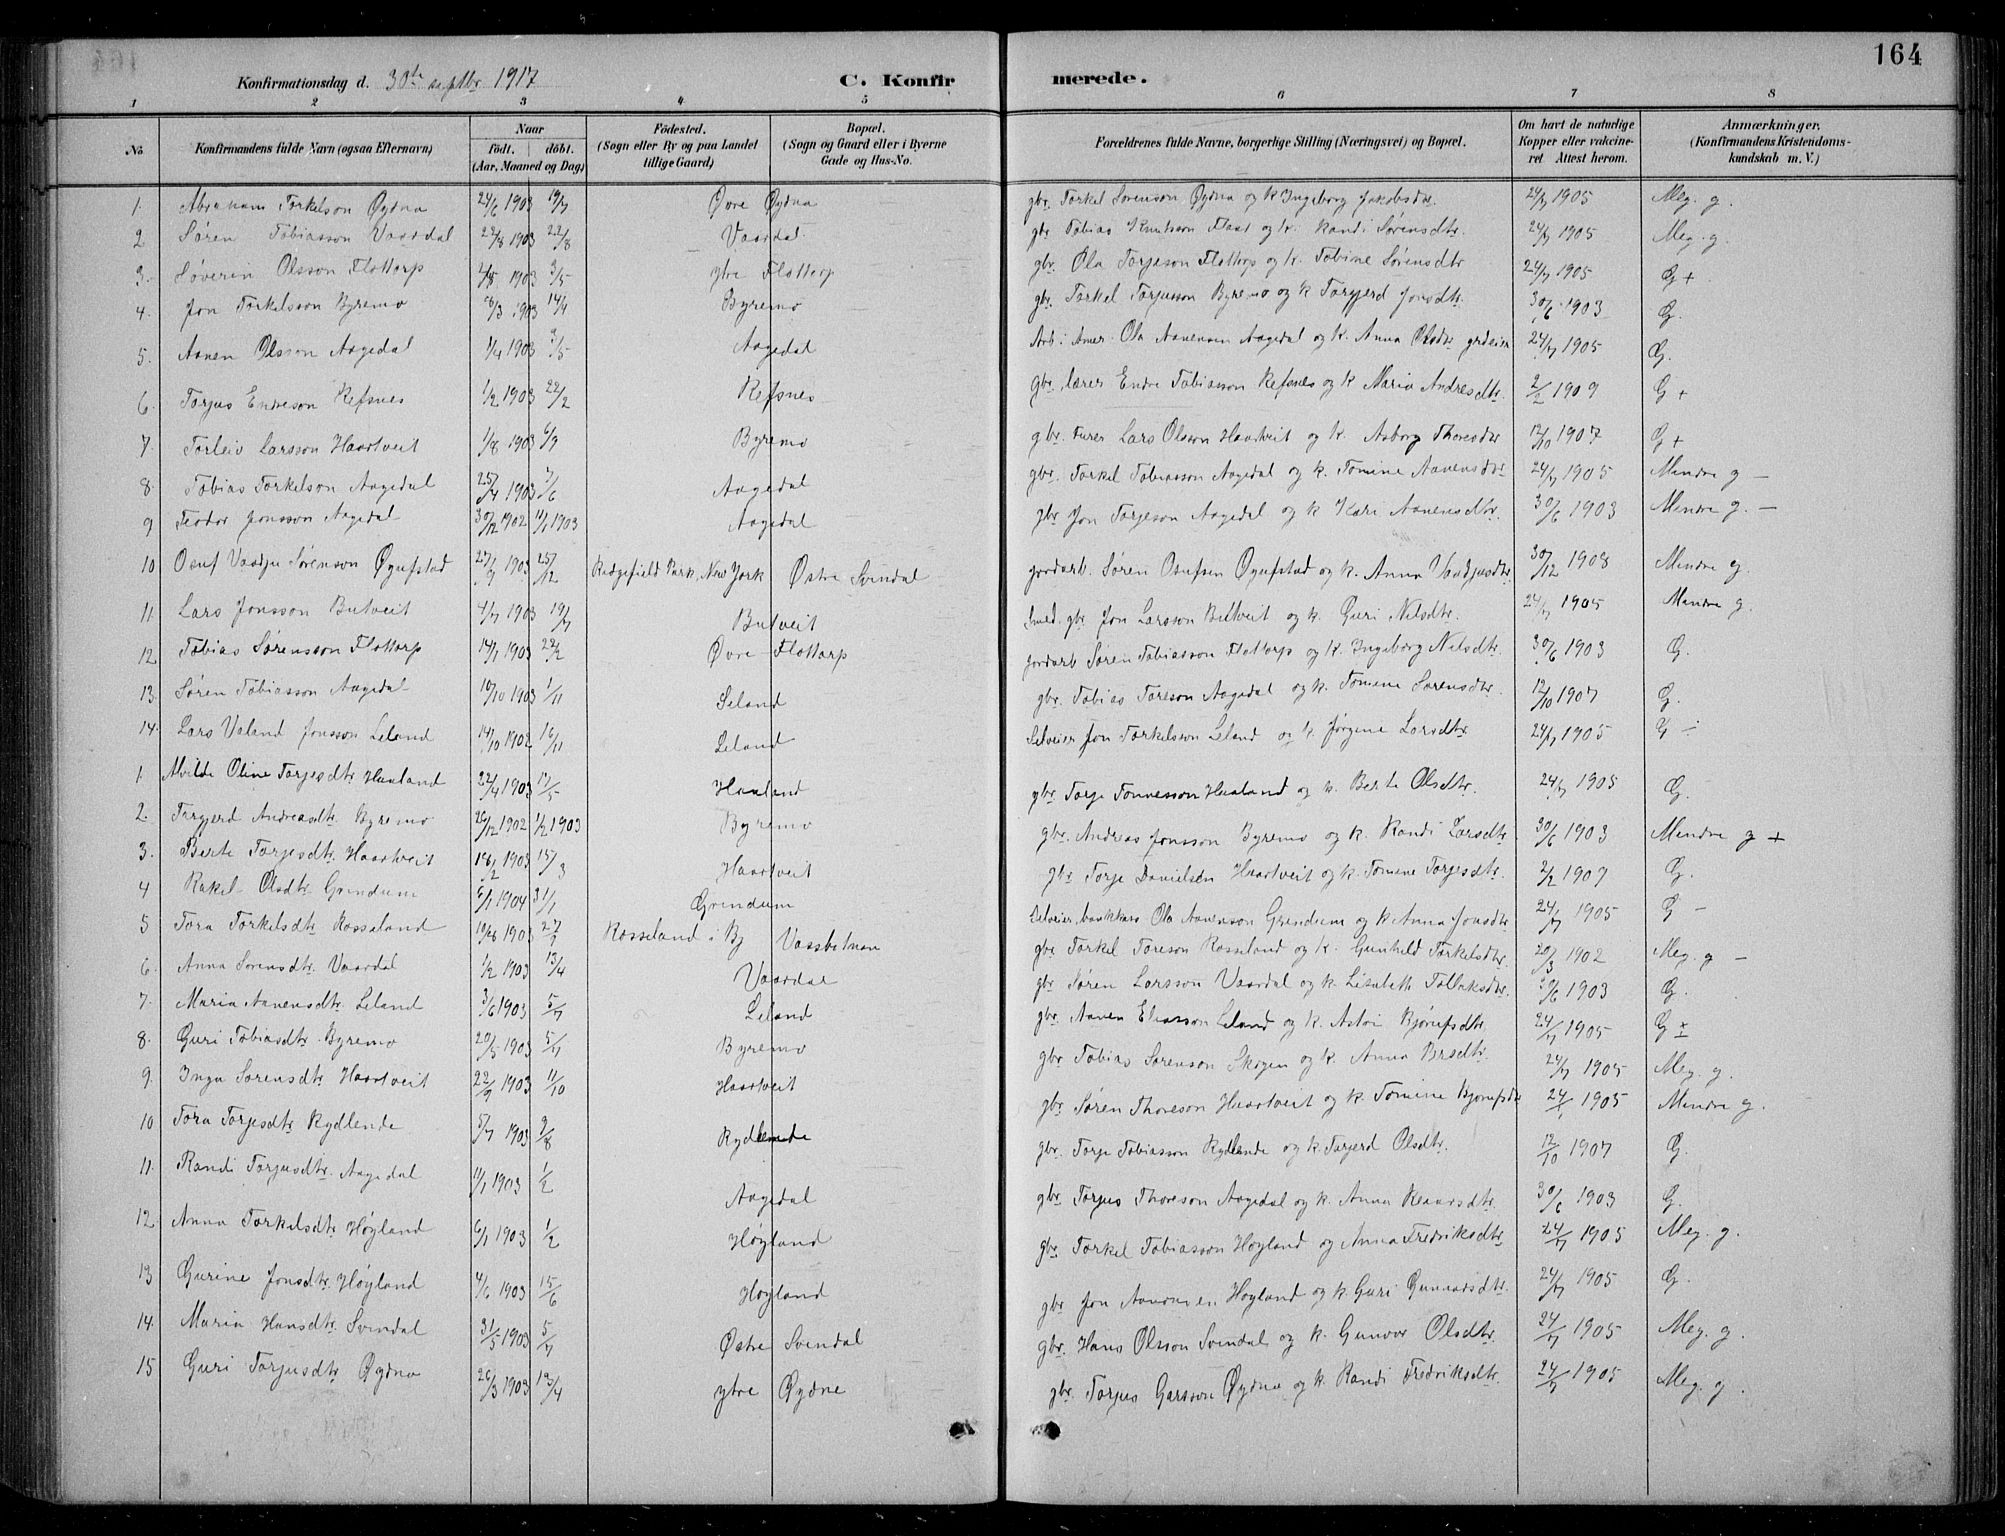 164
Konfirmationsdag d. 30te septbr 1917 C. Konfirmerede.
1 2 3 4 5 6 7 8
No Konfirmandens fulde Navn (ogsaa Efternavn) Naar født. døbt. (Aar, Maaned og Dag) Födested. (Sogn eller By og paa Landet tillige Gaard) Bopæl. (Sogn og Gaard eller i Byerne Gade og Hus-No. Forældrenes fulde Navne, borgerlige Stilling (Næringsvei) og Bopæl. Om havt de naturlige Kopper eller vakcineret Attest herom. Anmærkninger, (Konfirmandens Kristendomskundskab m. V.)
1. Abraham Torkelson Øydna 24/6 1903 19/7 Øvre Øydna gbr. Torkel Sørenson Øydna og k. Ingeborg Jakobsdtr. 24/7 1905 Meg. g.
2 Søren Tobiasson Vaardal 22/8 1903 22/8 Vaardal gbr. Tobias Knutsson og k. Randi Sørensdtr. 24/7 1905 Meg. g.
3. Søverin Olsson Flottorp 1903 3/5 ytre Flottorp gbr. Ola Torjeson Flottorp og k. Tobine Sørensdtr 24/7 1905 G +
4. Jon Torkelsson Byremo 1903 14/4 Byremo gbr. Torkel Torjusson Byremo og k Torgjerd Jonsdtr. 30/6 1903 G.
5. Aanen Olsson Aagedal 1/4 1903 3/5 Aagedal Arb. i Amer. Ola Aanensen Aagedal og k. Anna Olsdtr 24/7 1905 G.
6. Torjus Endreson Refsnes 1/2 1903 22/2 Refsnes gbr. lærer Endre Tobiasson Refsnes og k Maria Andresdtr. 2/2 1909 G +
7. Torleiv Larsson Haartveit 1/8 1903 6/9 Byremo gbr. Lars Olsson Haartveit og k. Asborg Thoresdtr 12/10 1907 G +
8. Tobias Torkelson Aagedal 25/4 1903 7/6 Aagedal gbr. Torkel Tobiasson Aagedal og k. Tomine Aanensdtr 24/7 1905 Mindre g –
9 Teodor Jonsson Aagedal 30/12 1902 11/1 1903 Aagedal gbr Jon Torjeson Aagedal og k Kari Aanensdtr. 30/6 1903 Mindre g. –
10 Osuf Vaadju Sørenson Øyufstad 27/9 1903 25/12 Ridgefield Park, New York Østre Svindal jordarb. Søren Osufsen Øyufstad og k. Anna Vaadjusdtr 30/12 1908 Mindre g.
11. Lars Jonsson Butveit 4/7 1903 19/7 Butveit Smed. gbr. Jon Larsson Butveit og k. Guri Nilsdtr. 24/7 1905 Mindre g.
12 Tobias Sørensson Flottorp 14/1 1903 22/2 Øvre Flottorp jordarb Søren Tobiasson Flottorp og k. Ingeborg Nilsdtr. 30/6 1903 G.
13. Søren Tobiasson Aagedal 10/10 1903 1/11 Leland gbr. Tobias Toreson Aagedal og k. Tomine Sørensdtr. 12/10 1907 G.
14. Lars Valand Jonsson Leland 14/10 1902 16/11 Leland Selveier Jon Torkelsson Leland og k. Jørgine Larsdtr 24/7 1905 G ÷
1. Alvilde Oline Torjesdtr Haaland 22/4 1903 17/5 Haaland gbr Torje Tonnesson Haaland og k. Berte Olsdtr. 24/7 1905 G.
2. Torgjerd Andreasdtr. Byremo 26/12 1902 1/2 1903 Byremo gbr. Andreas Jonsson Byremo og k. Randi Larsdtr. 30/6 1903 Mindre g +
3. Berte Torjesdtr. Haartveit 18/2 1903 15/3 Haartveit gbr Torje Danielsen Haartveit og k. Tomine Torjesdtr. 2/2 1907 G.
4 Rakel Olsdtr. Grindum 6/1 1904 31/1 Grindum Selveier Ola Aanenson Grindum og k. Anna Jonsdtr 24/7 1905 G –
5 Tora Torkelsdtr Rosseland 1903 27/9 Rosseland i By Vassbotnen gbr. Torkel Toreson Rosseland og k. Gunhild Torkelsdtr. 20/3 1902 Meg. g –
6. Anna Sørensdtr. Vaardal 1/2 1903 13/4 Vaardal gbr. Søren Larsson Vaardal og k. Lisabeth Tollaksdtr. 30/6 1903 G.
7. Maria Aanensdtr. Leland 3/6 1903 5/7 Leland gbr. Aanen Eliasson Leland og k. Astri Bjørufsdtr. 24/7 1905 G ±
8. Guri Tobiasdtr. Byremo 20/5 1903 5/7 Byremo gbr. Tobias Sørenson Skogen og k. Anna 24/7 1905 Meg. g.
9. Inga Sørensdtr Haartveit 22/9 1903 11/10 Haartveit gbr. Søren Thoreson Haartveit og k. Tomine Bjørufsdtr 24/7 1905 Mindre g.
10 Tora Torjesdtr Rydlende 5/7 1903 9/8 Rydlende gbr. Torje Tobiasson Rydlende og k. Torjerd Olsdtr. 12/10 1907 G.
11. Randi Torjusdtr. Aagedal 11/1 1903 1/2 Aagedal gbr. Torjus Thoreson Aagedal og k. Anna 30/6 1903 G.
12. Anna Torkelsdtr. Høyland 6/1 1903 1/2 Høyland gbr. Torkel Tobiasson Høyland og Anna Fredriksdtr 24/7 1905 Meg. g.
13 Gurine Jonsdtr. Høyland 4/6 1903 15/6 Høyland gbr Jon Aanonsen Høyland og k. Guri Gunnarsdtr. 24/7 1905 G.
14. Maria Hansdtr. Svindal 31/5 1903 5/7 Østre Svindal gbr. Hans Olsson Svindal og k. Gunvor Olsdtr. 24/7 1905 Meg. g.
15 Guri Torjusdtr Øydna 26/3 1903 13/4 ytre Øydne gbr. Torjus Garsson Øydna og k. Randi Fredriksdtr. 24/7 1905 Meg. g.